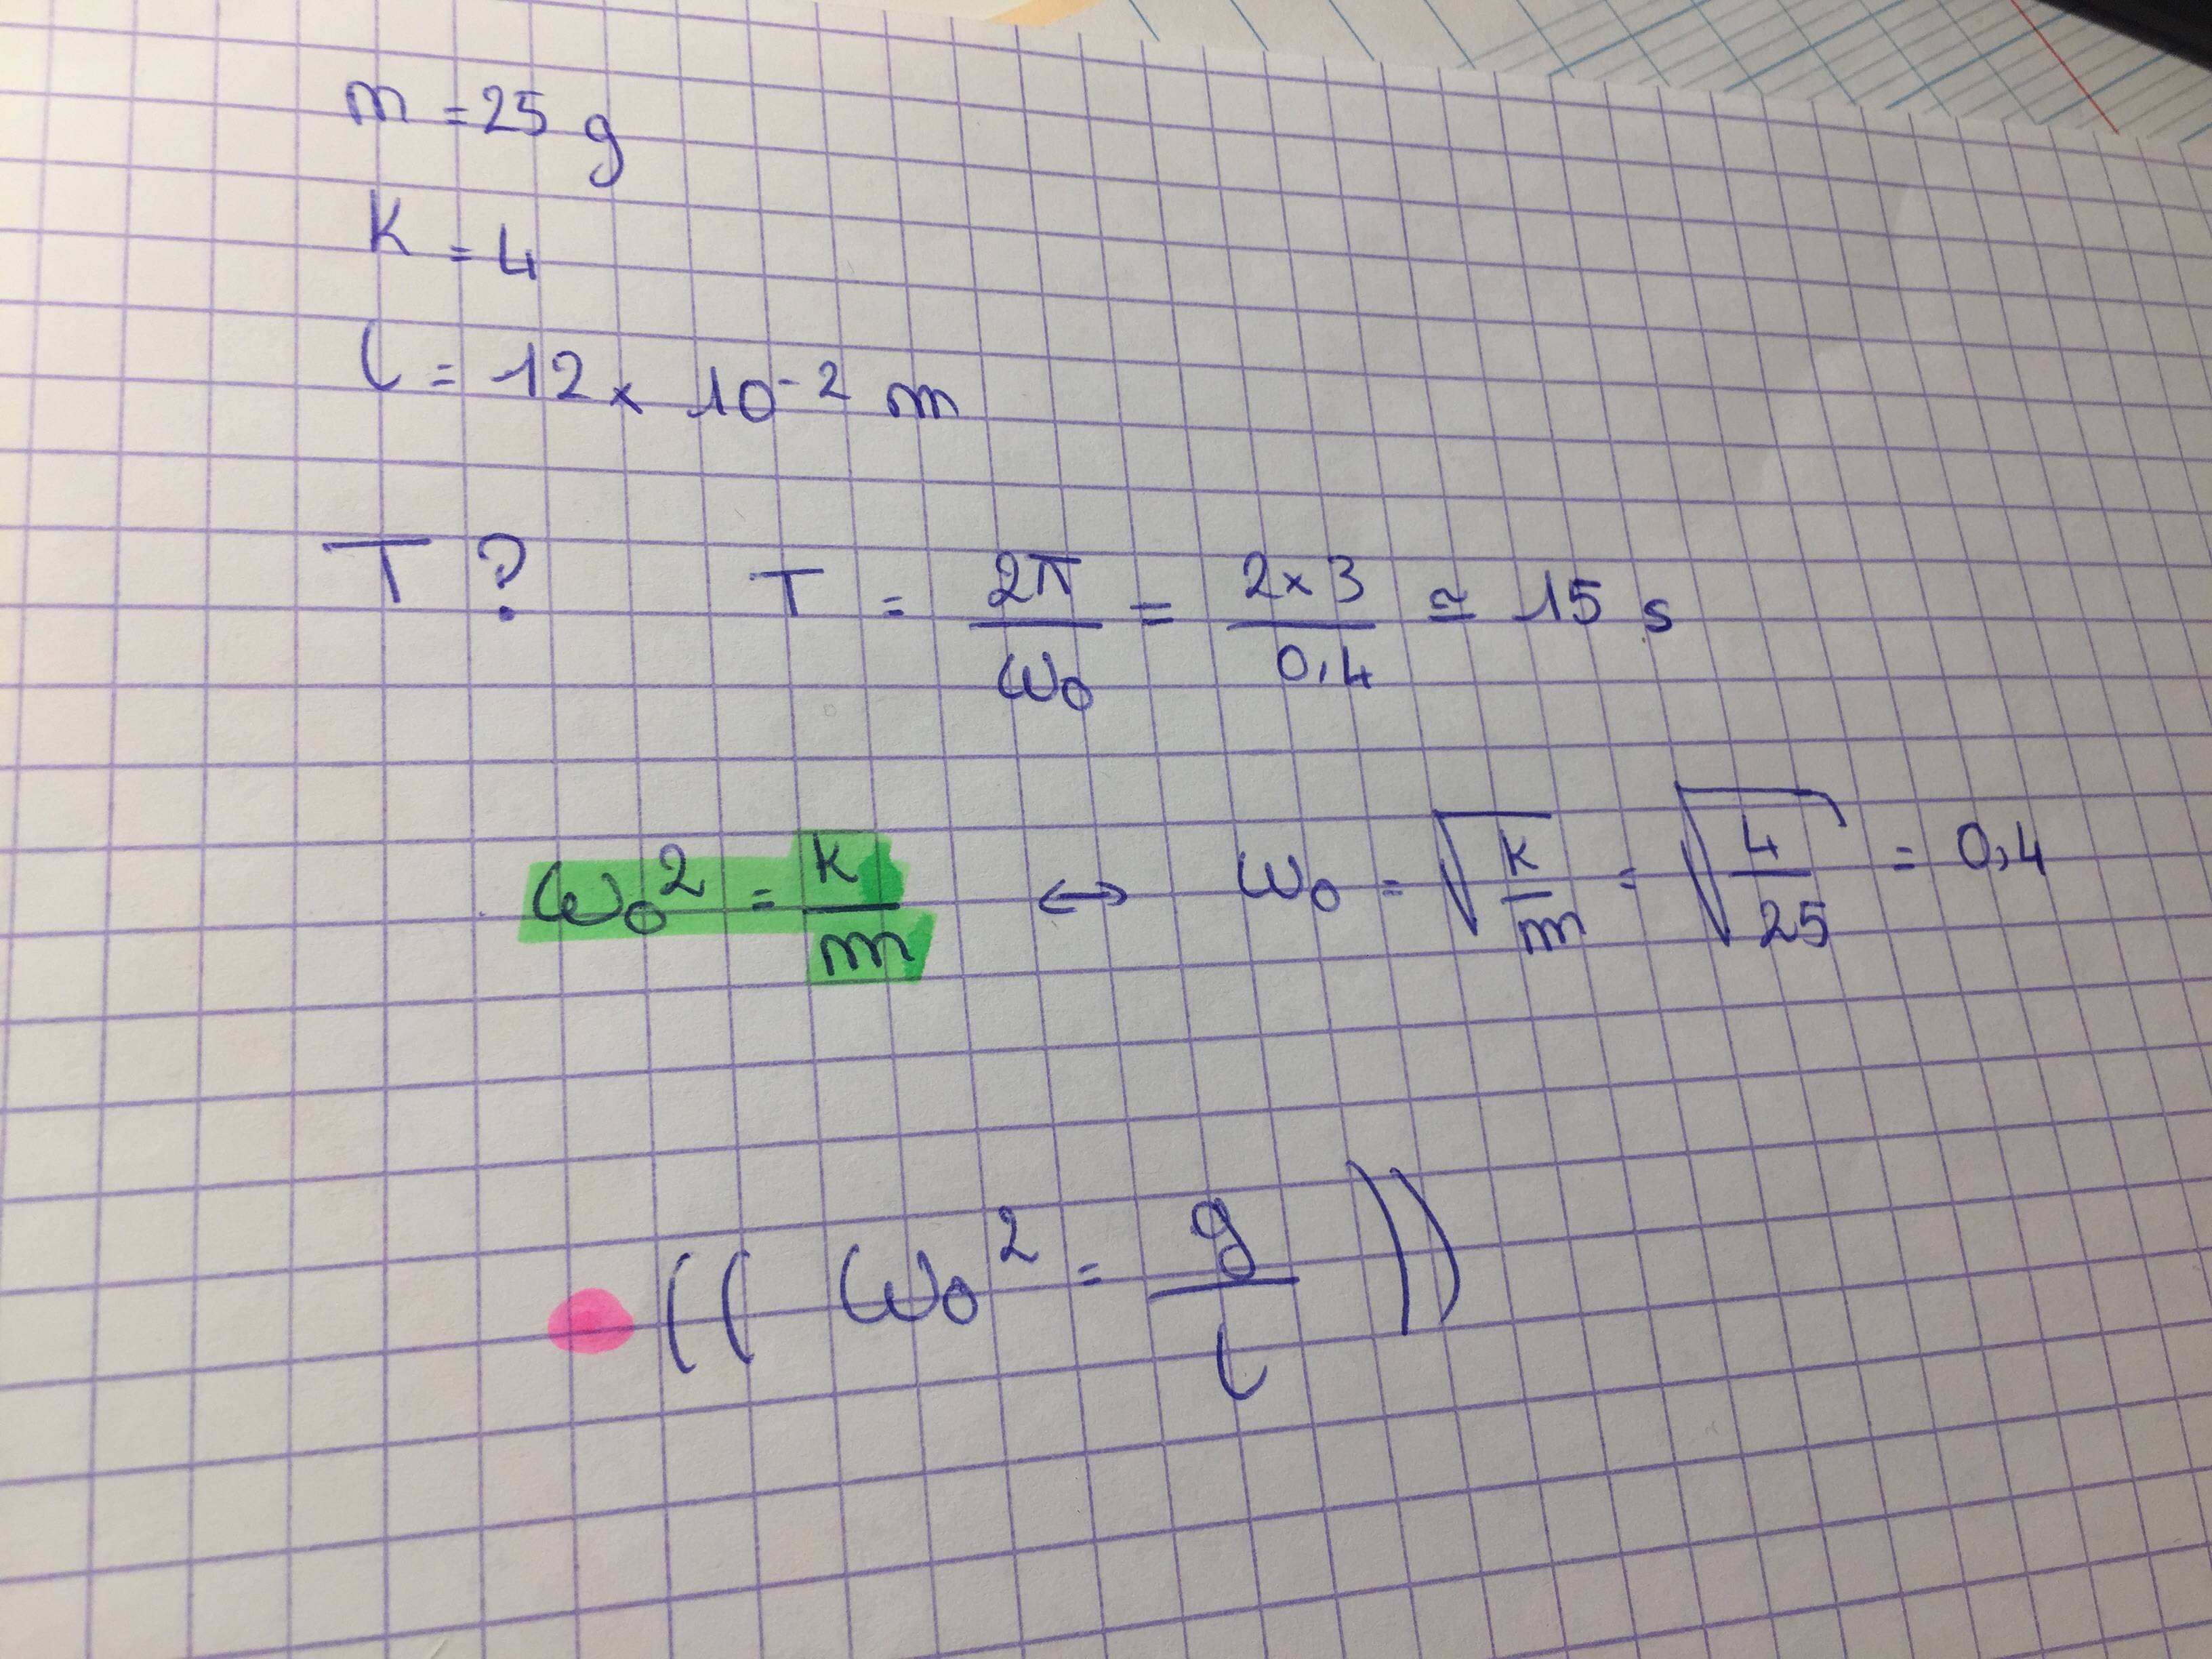 m = 25 g
K = 4
l = 12 x 10⁻² m
T ? T = 2π/ω₀ = 2x3/0,4 ≃ 15 s
ω₀² = k/m ↔ ω₀ = √(k/m) = √(4/25) = 0,4
(( ω₀² = g/l ))